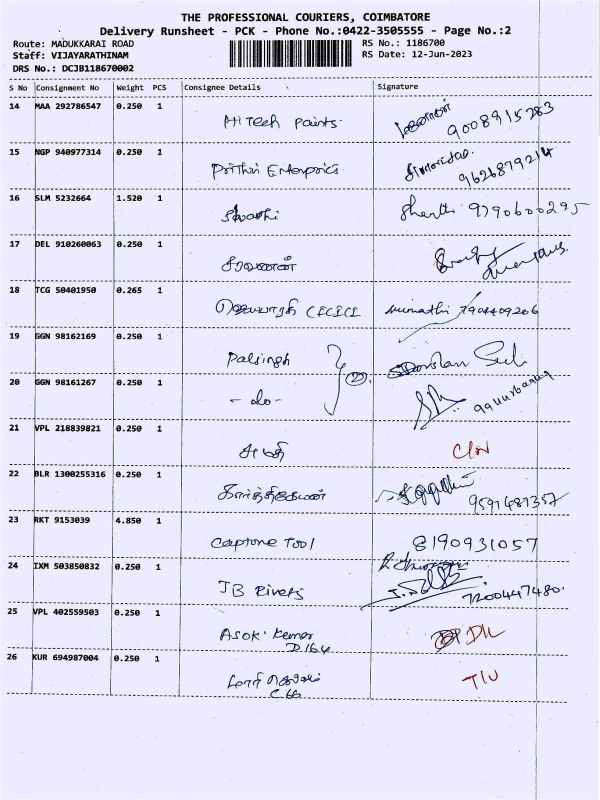 THE PROFESSIONAL COURIERS, COIMBATORE
Delivery Runsheet - PCK - Phone No.:0422-3505555 - Page No.:2
Route: MADUKKARAI ROAD RS No.: 1186700
Staff: VIJAYARATHINAM RS Date: 12-Jun-2023
DRS No.: DCJB118670002
S No Consignment No Weight PCS Consignee Details Signature
14 MAA 292786547 0.250 1
HiTech paints 9008915283
15 NGP 940977314 0.250 1
Prithvi Enterprices 9626879214
16 SLM 5232664 1.520 1
Shanthi 9790600295
17 DEL 910260063 0.250 1
சரவணன்
18 TCG 50401950 0.265 1
7904409206
19 GGN 98162169 0.250 1
Palsingh
20 GGN 98161267 0.250 1
- do -
21 VPL 218839821 0.250 1
22 BLR 1300255316 0.250 1
கார்த்திகேயன் 9591487357
23 RKT 9153039 4.850 1
Captone Tool 8190931057
24 IXM 503850832 0.250 1
JB Rivets 7200447480
25 VPL 402559503 0.250 1
Asok kumar
D.164
26 KUR 694987004 0.250 1